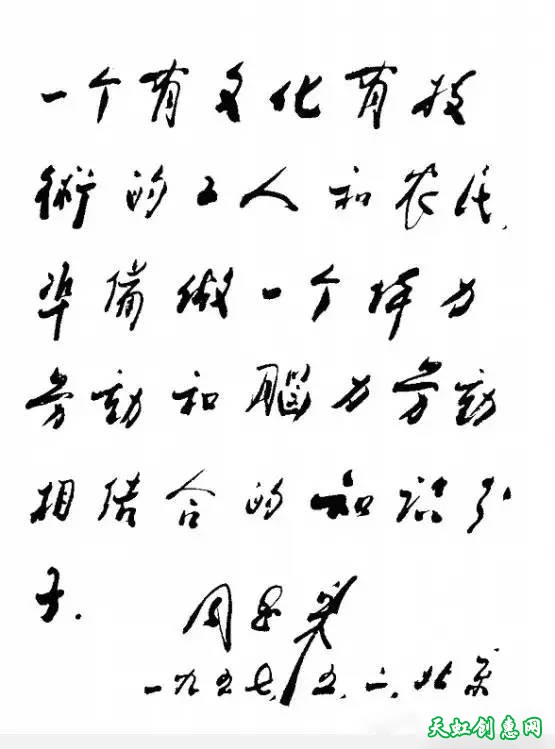 一个有文化有技
術的工人和农民,
準備做一个体力
劳动和腦力劳动
相结合的知识分
子.
周恩来
一九五七,五,一,北京
天虹创意网